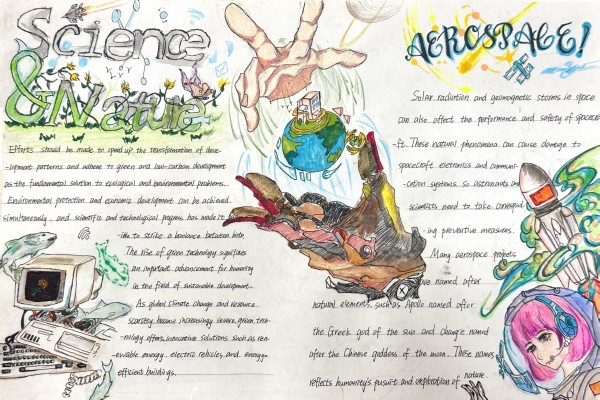 Science
& Nature
Efforts should be made to speed up the transformation of deve-
-lopment patterns and adhere to green and low-carbon development
as the fundamental solution to ecological and environmental problems.
Environmental protection and economic development can be achieved
simultaneously, and scientific and technological progress has made it
to strike a between both.
The rise of green technology signifies
an important advancement for humanity
in the field of sustainable development.
As global climate change and resource
scarcity become increasingly severe, green tech-
-nology offers innovative solutions such as ren-
-ewable energy, electric vehicles and energy-
efficient buildings.
AEROSPACE!
Solar radiation and geomagnetic storms in space
can also affect the performance and safety of spacecra
-ft. These natural phenomena can cause damage to
spacecraft eletronics and communi-
-cation systems. So astronauts and
scientists need to take correspond
-ing preventive measures.
Many aerospace projects
named after
natural elements, such as Apollo named after
the Greek god of the sun and Chang'e named
after the Chinese goddess of the moon. These names
reflects humanity's pursuit and exploration of nature.